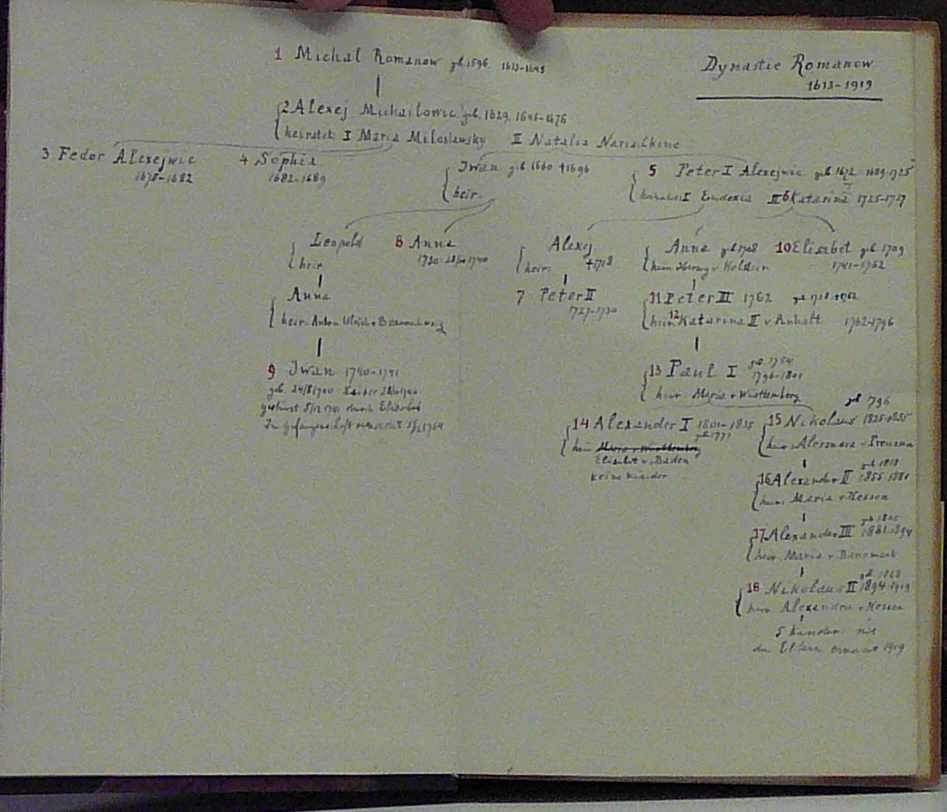 1 Michal Romanow geb. 1596 1613-1645
Dynastie Romanow
1613-1919
2 Alexej Michailowic geb. 1629 1645-1676
heiratet I Maria Miloslawsky II Natalia Narischkine
3 Fedor Alexejwic
1676-1682
4 Sophia
1682-1689
Iwan geb 1666 †1696
heir.
5 Peter I Alexejwic geb 1672 1689-1725
heiratet I Eudoxia II 6 Katarina 1725-1727
Leopold
heir
8 Anna
1740
Alexej
heir. †1718
Anna geb 1708
heir. Herzog v Holstein
10 Elisabet geb 1709
1741-1762
Anna
heir. Anton Ulrich v Braunschweig
7 Peter II
1727-1730
11 Peter III 1762
heir. 12 Katarina II v. Anhalt 1762-1796
9 Iwan 1740-1741
geb. 24/8 1740 Kaiser
gestürzt durch Elisabet
In Gefangenschaft ermordet 1764
13 Paul I geb 1754
1796-1801
heir. Maria v Württemberg
14 Alexander I 1801-1825
geb 1777
heir. Maria v Württemberg
Elisabet v. Baden
keine Kinder
geb 796
15 Nikolaus 1825-1855
heir. Alexandra v Preussen
16 Alexander II geb 1818
1855-1881
heir. Maria v Hessen
17 Alexander III geb 1845
1881-1894
heir. Maria v Danemark
18 Nikolaus II geb. 1868
1894-1919
heir. Alexandra v Hessen
5 Kinder mit
den Eltern ermordet 1919